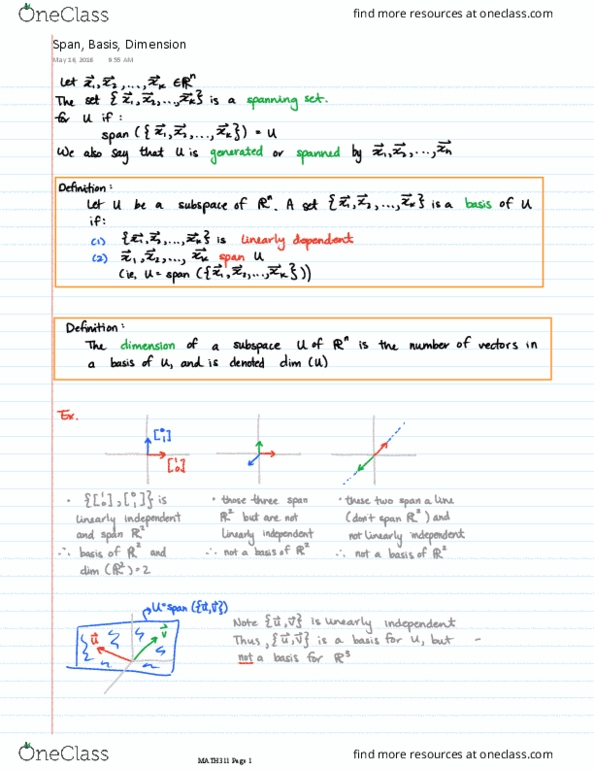 OneClass
find more resources at oneclass.com
Span, Basis, Dimension
May 24, 2016 9:55 AM
Let x⃗₁, x⃗₂, ..., x⃗ₖ ∈ ℝⁿ
The set {x⃗₁, x⃗₂, ..., x⃗ₖ} is a spanning set.
for U if:
span({x⃗₁, x⃗₂, ..., x⃗ₖ}) = U
We also say that U is generated or spanned by x⃗₁, x⃗₂, ..., x⃗ₙ
Definition:
Let U be a subspace of ℝⁿ. A set {x⃗₁, x⃗₂, ..., x⃗ₖ} is a basis of U
if:
(1) {x⃗₁, x⃗₂, ..., x⃗ₖ} is linearly dependent
(2) x⃗₁, x⃗₂, ..., x⃗ₖ span U
(ie, U = span({x⃗₁, x⃗₂, ..., x⃗ₖ}))
Definition:
The dimension of a subspace U of ℝⁿ is the number of vectors in
a basis of U, and is denoted dim (U)
Ex.
[0 1]
[1 0]
· {[1 0], [0 1]} is
linearly independent
and span ℝ²
∴ basis of ℝ² and
dim (ℝ²) = 2
· those three span
ℝ² but are not
linearly independent
∴ not a basis of ℝ²
· these two span a line
(don't span ℝ²) and
not linearly independent
∴ not a basis of ℝ²
U = span({u⃗, v⃗})
u⃗
v⃗
Note {u⃗, v⃗} is linearly independent
Thus, {u⃗, v⃗} is a basis for U, but
not a basis for ℝ³
OneClass
MATH311 Page 1
find more resources at oneclass.com